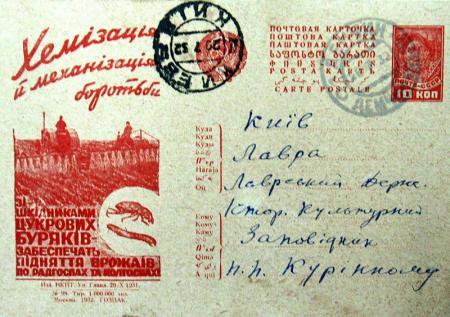 Хемізація
й механізація
боротьби
зі
шкідниками
цукрових
буряків-
забеспечать
підняття врожаїв
по радгоспах та колгоспах!
Изд. НКПТ. Ул. Главл. 29-X 1931.
№ 99. Тир. 1.000.000 экз.
Москва. 1932. ГОЗНАК.
КИЇВ
КИЕВ
ПОЧТОВАЯ КАРТОЧКА
ПОШТОВА КАРТКА
ПАШТОВАЯ КАРТКА
POSTA KARTЬ
CARTE POSTALE
ПОЧТА СССР
10 КОП
Куда
Куди
Куды
Où
Кому
Кому
Каму
Qimə
À qui
Київ
Лавра
Лаврський Держ.
Істор. Культурний
Заповідник
п. П. Курінному